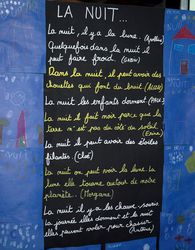 LA NUIT...
La nuit, il y a la lune.
Quelquefois dans la nuit il
peut faire froid. (Enzo)
Dans la nuit, il peut avoir des
chouettes qui font du bruit
La nuit les enfants dorment.
La nuit il fait noir parce que la
terre n'est pas du côté du soleil.
La nuit il peut avoir des étoiles
filantes (Cloé)
La nuit on peut voir la lune. La
lune elle tourne autour de notre
planète. (Morgane)
La nuit il y a les chauve souris
la journée elles dorment et la nuit
elles peuvent voler